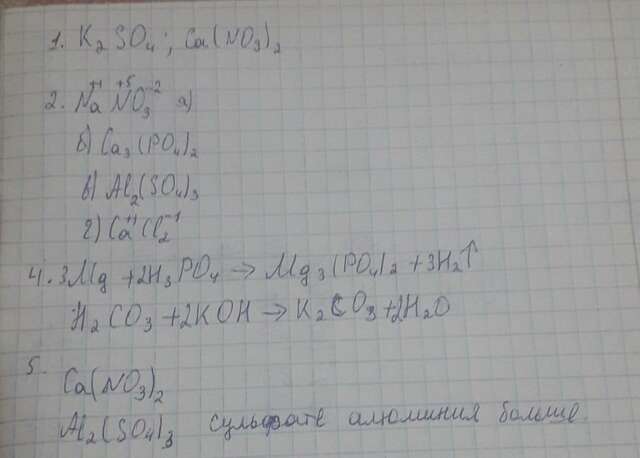 1. K₂SO₄; Ca(NO₃)₂
2. Na⁺¹N⁺⁵O₃⁻² а)
б) Ca₃(PO₄)₂
в) Al₂(SO₄)₃
г) Ca⁺¹Cl₂⁻¹
4. 3Mg + 2H₃PO₄ → Mg₃(PO₄)₂ + 3H₂↑
H₂CO₃ + 2KOH → K₂CO₃ + 2H₂O
5.
Ca(NO₃)₂
Al₂(SO₄)₃ сульфате алюминия больше